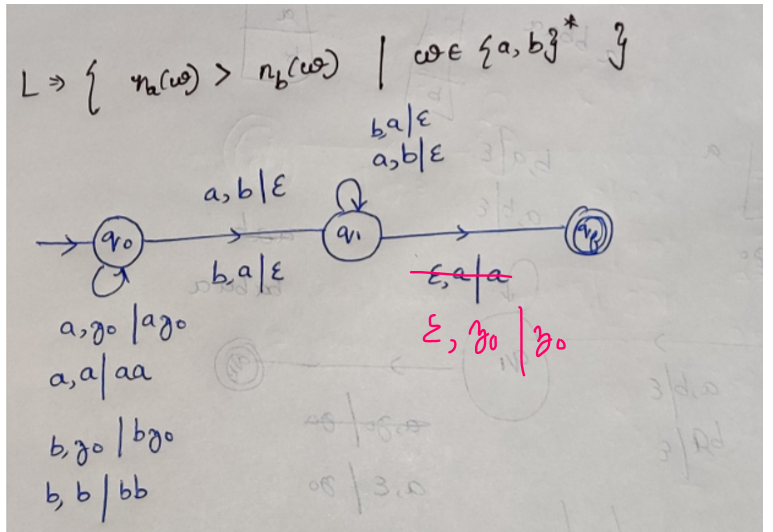 L ⇒ { nₐ(ω) > n_b(ω) | ω ∈ {a, b}* }
b,a|ε
a,b|ε
a,b|ε
q₀
q₁
q_f
b,a|ε
ε,a|a
a,z₀|az₀
ε, z₀|z₀
a,a|aa
b,z₀|bz₀
b,b|bb